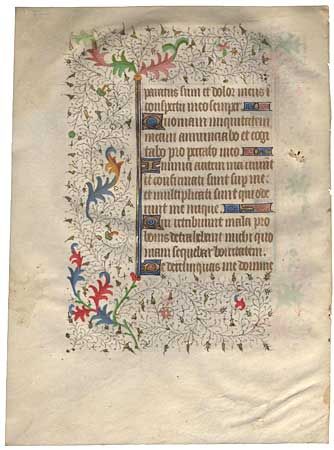 paratus sum et dolor meus i
conspectu meo semper
Quoniam iniquitatem
meam annunciabo et cogi
tabo pro peccato meo
Inimici autem mei vivunt
et confirmati sunt sup me
et multiplicati sunt qui ode
runt me inique
Qui retribuunt mala pro
bonis detrahebant michi quo
niam sequebar bonitatem
Ne derelinquas me domine